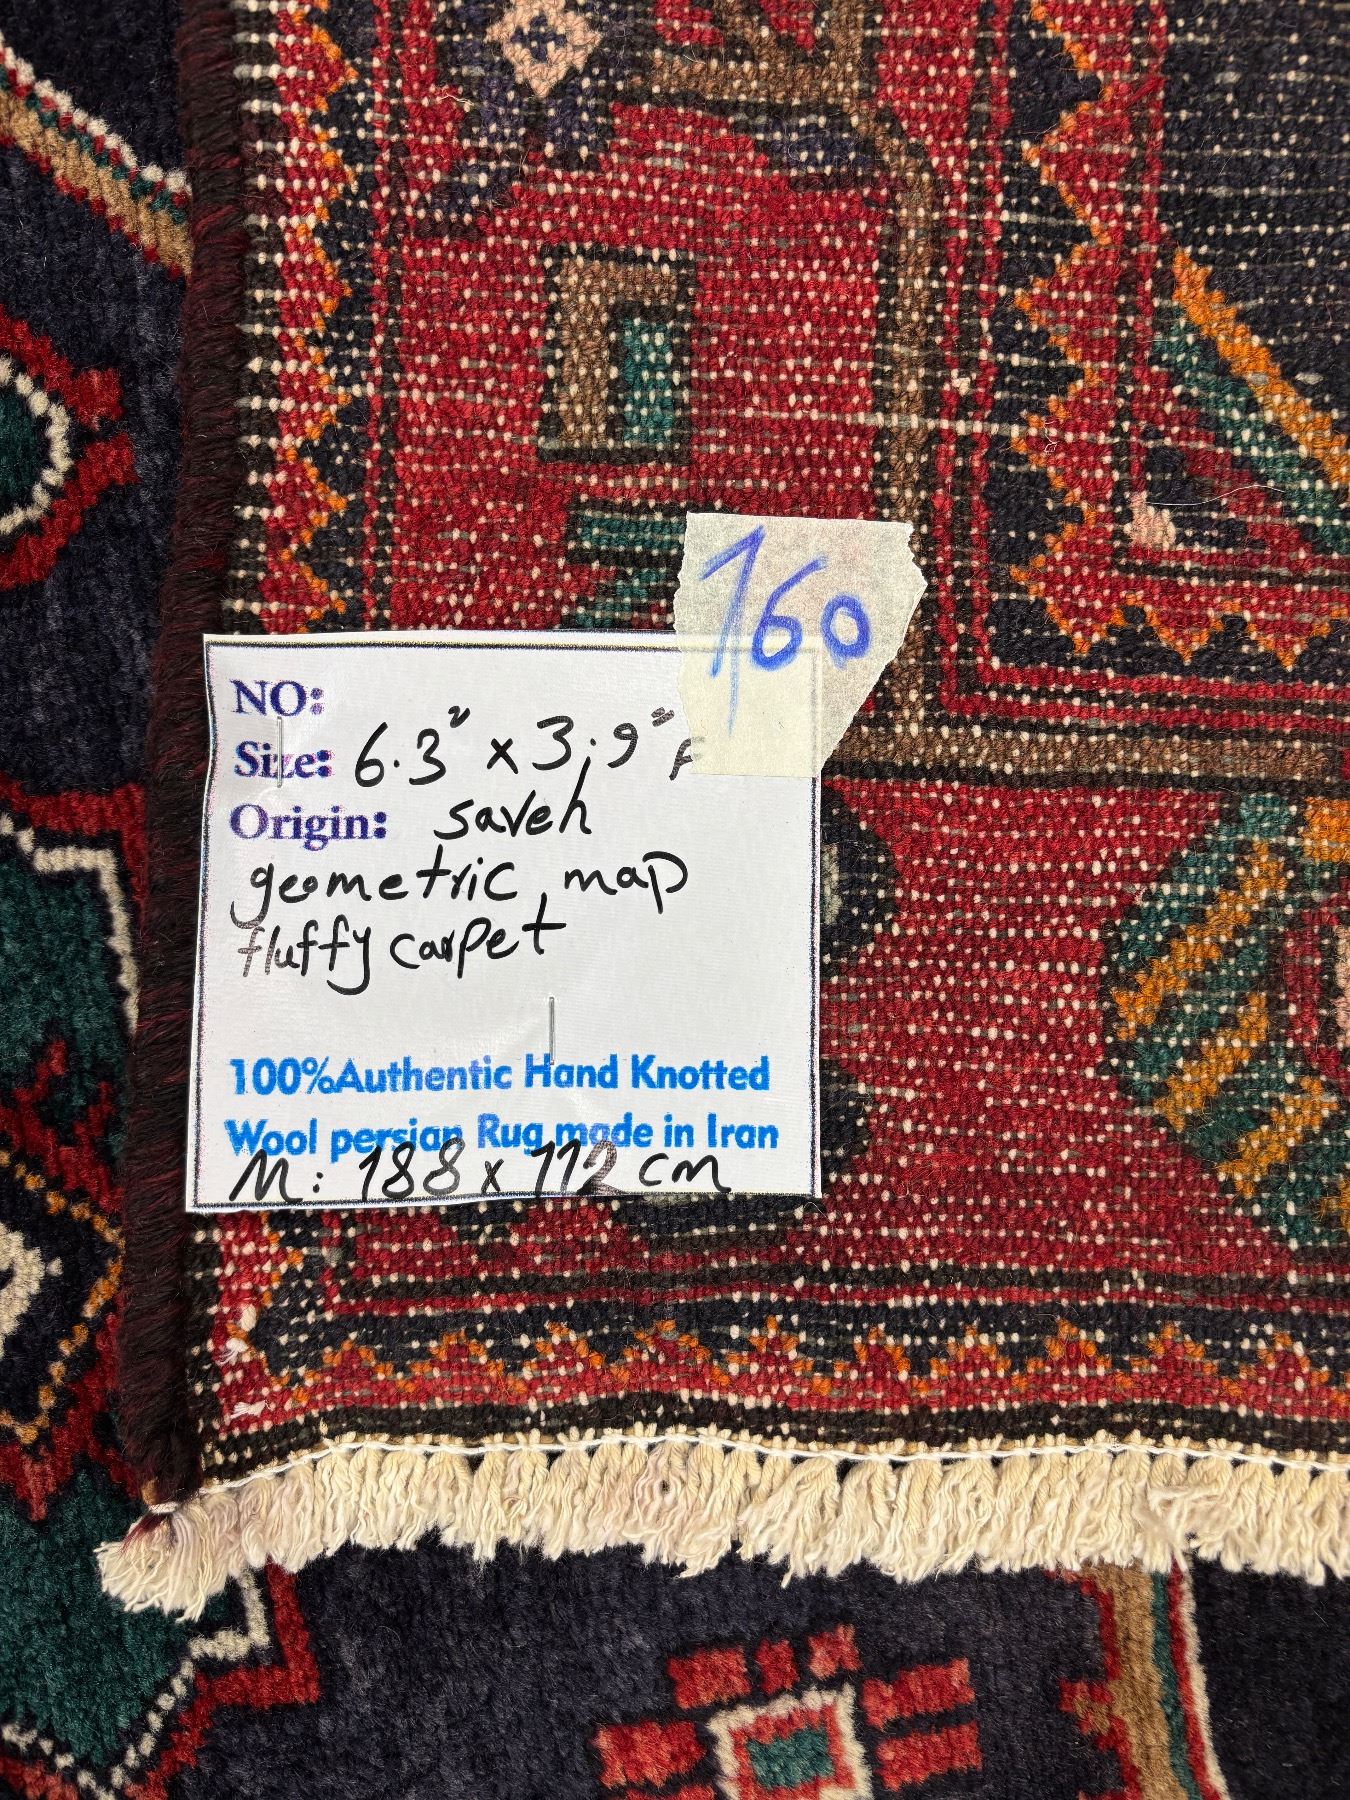 160
NO:
Size: 6.3" x 3,9" F
Origin: saveh
geometric, map
fluffy carpet
100%Authentic Hand Knotted
Wool persian Rug made in Iran
M: 188 x 112 cm